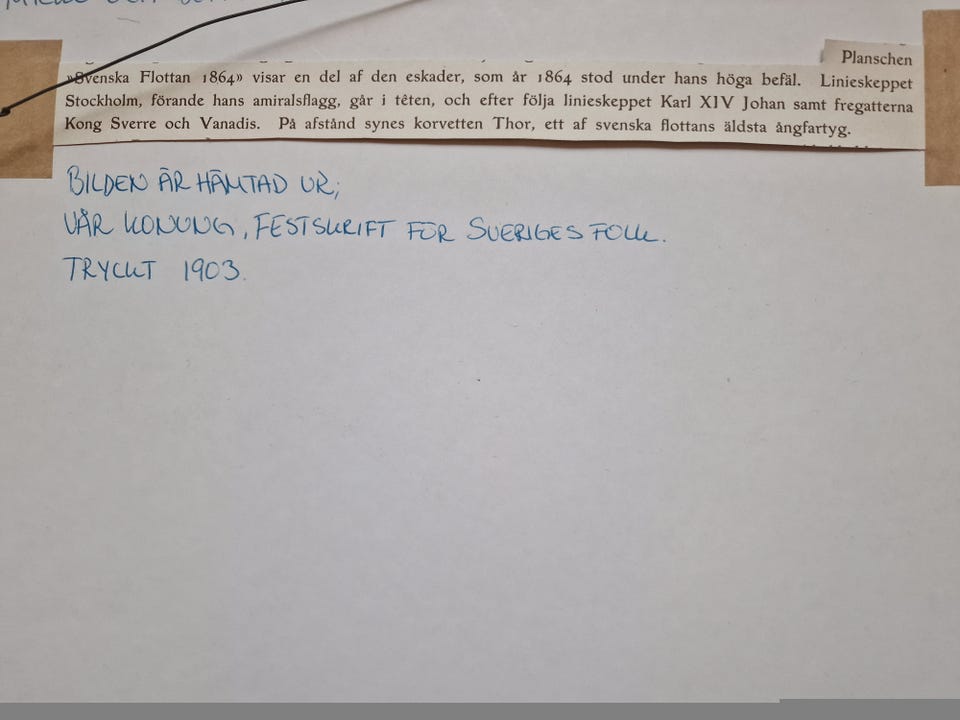 Planschen
»Svenska Flottan 1864» visar en del af den eskader, som år 1864 stod under hans höga befäl. Linieskeppet
Stockholm, förande hans amiralsflagg, går i têten, och efter följa linieskeppet Karl XIV Johan samt fregatterna
Kong Sverre och Vanadis. På afstånd synes korvetten Thor, ett af svenska flottans äldsta ångfartyg.
BILDEN ÄR HÄMTAD UR;
VÅR KONUNG, FESTSKRIFT FÖR SVERIGES FOLK.
TRYCKT 1903.